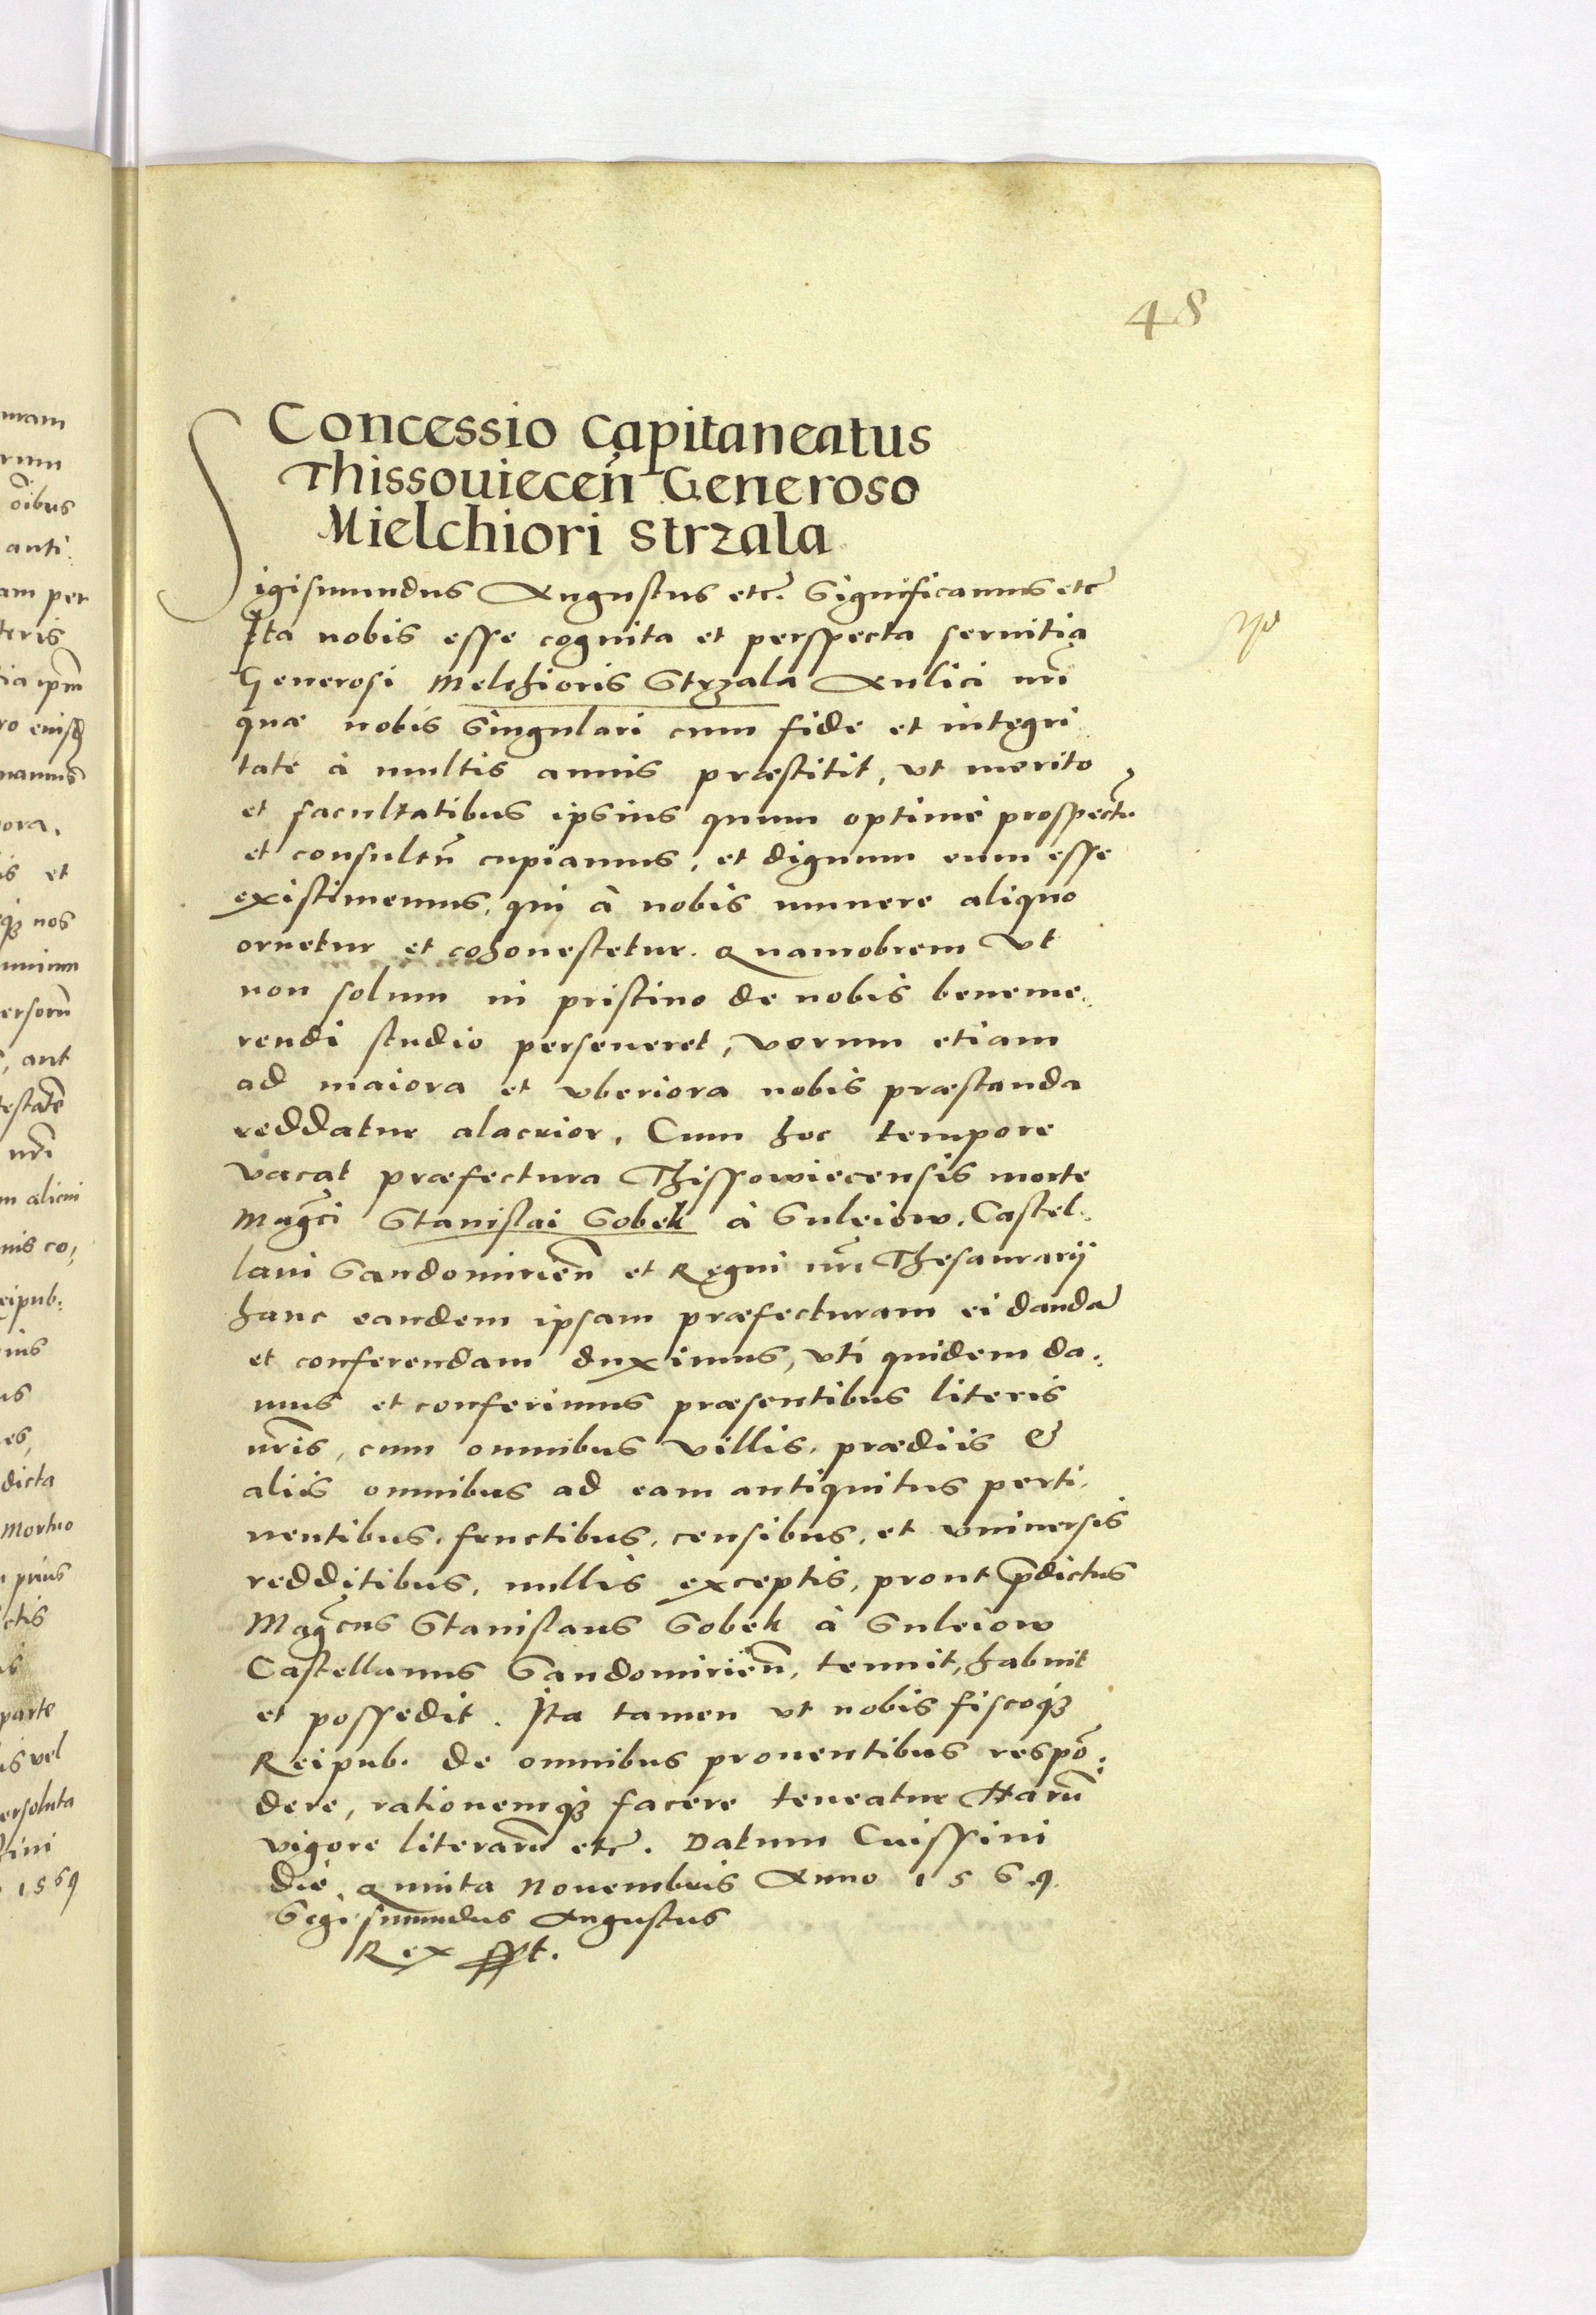 48
Concessio Capitaneatus
Thissouiecen̄ Generoso
Mielchiori Strzala
Sigismundus Augustus etc. Significamus etc
Ita nobis esse cognita et perspecta seruitia
Generosi Melchioris Strzala Aulici nr̄i
quæ nobis singulari cum fide et integri
tate à multis annis præstitit, ut merito
et facultatibus ipsius quum optime prospectū
et consultū cupiamus, et dignum eum esse
existimemus, qui à nobis munere aliquo
ornetur et cohonestetur. Quamobrem Vt
non solum in pristino de nobis beneme.
rendi studio perseueret, verum etiam
ad maiora et vberiora nobis præstanda
reddatur alacrior, Cum hoc tempore
vacat præfectura Thissowiecensis morte
Mag̃ci Stanislai Sobek à Suleiow, Castel.
lani Sandomirien̄ et Regni nr̄i Thesaurarij
hanc eandem ipsam præfecturam ei dandā
et conferendam duximus, vti quidem da.
mus et conferimus præsentibus literis
nr̄is, cum omnibus villis, prædiis &
aliis omnibus ad eam antiquitus perti.
nentibus, fructibus, censibus, et vniuersis
redditibus, nullis exceptis, prout p̄dictus
Mag̃cus Stanislaus Sobek à Suleiow
Castellanus Sandomirien̄, tenuit, habuit
et possedit. Ita tamen ut nobis fiscoq́
Reipub. de omnibus prouentibus respō.
dere, rationemq́ facere teneatur Harū
vigore literarū etc. Datum Cuissini
die Quinta Nouembris Anno 1569.
Sigismundus Augustus
Rex sspt.